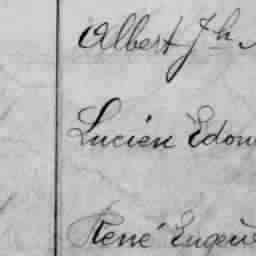 Albert Jh
Lucien Edou
René Eugèn